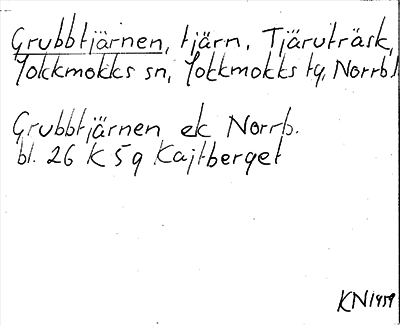 Grubbtjärnen, tjärn, Tjäruträsk,
Jokkmokks sn, Jokkmokks tg, Norrb.l
Grubbtjärnen ek Norrb.
bl. 26 K 5 g Kajtberget
KN 1959